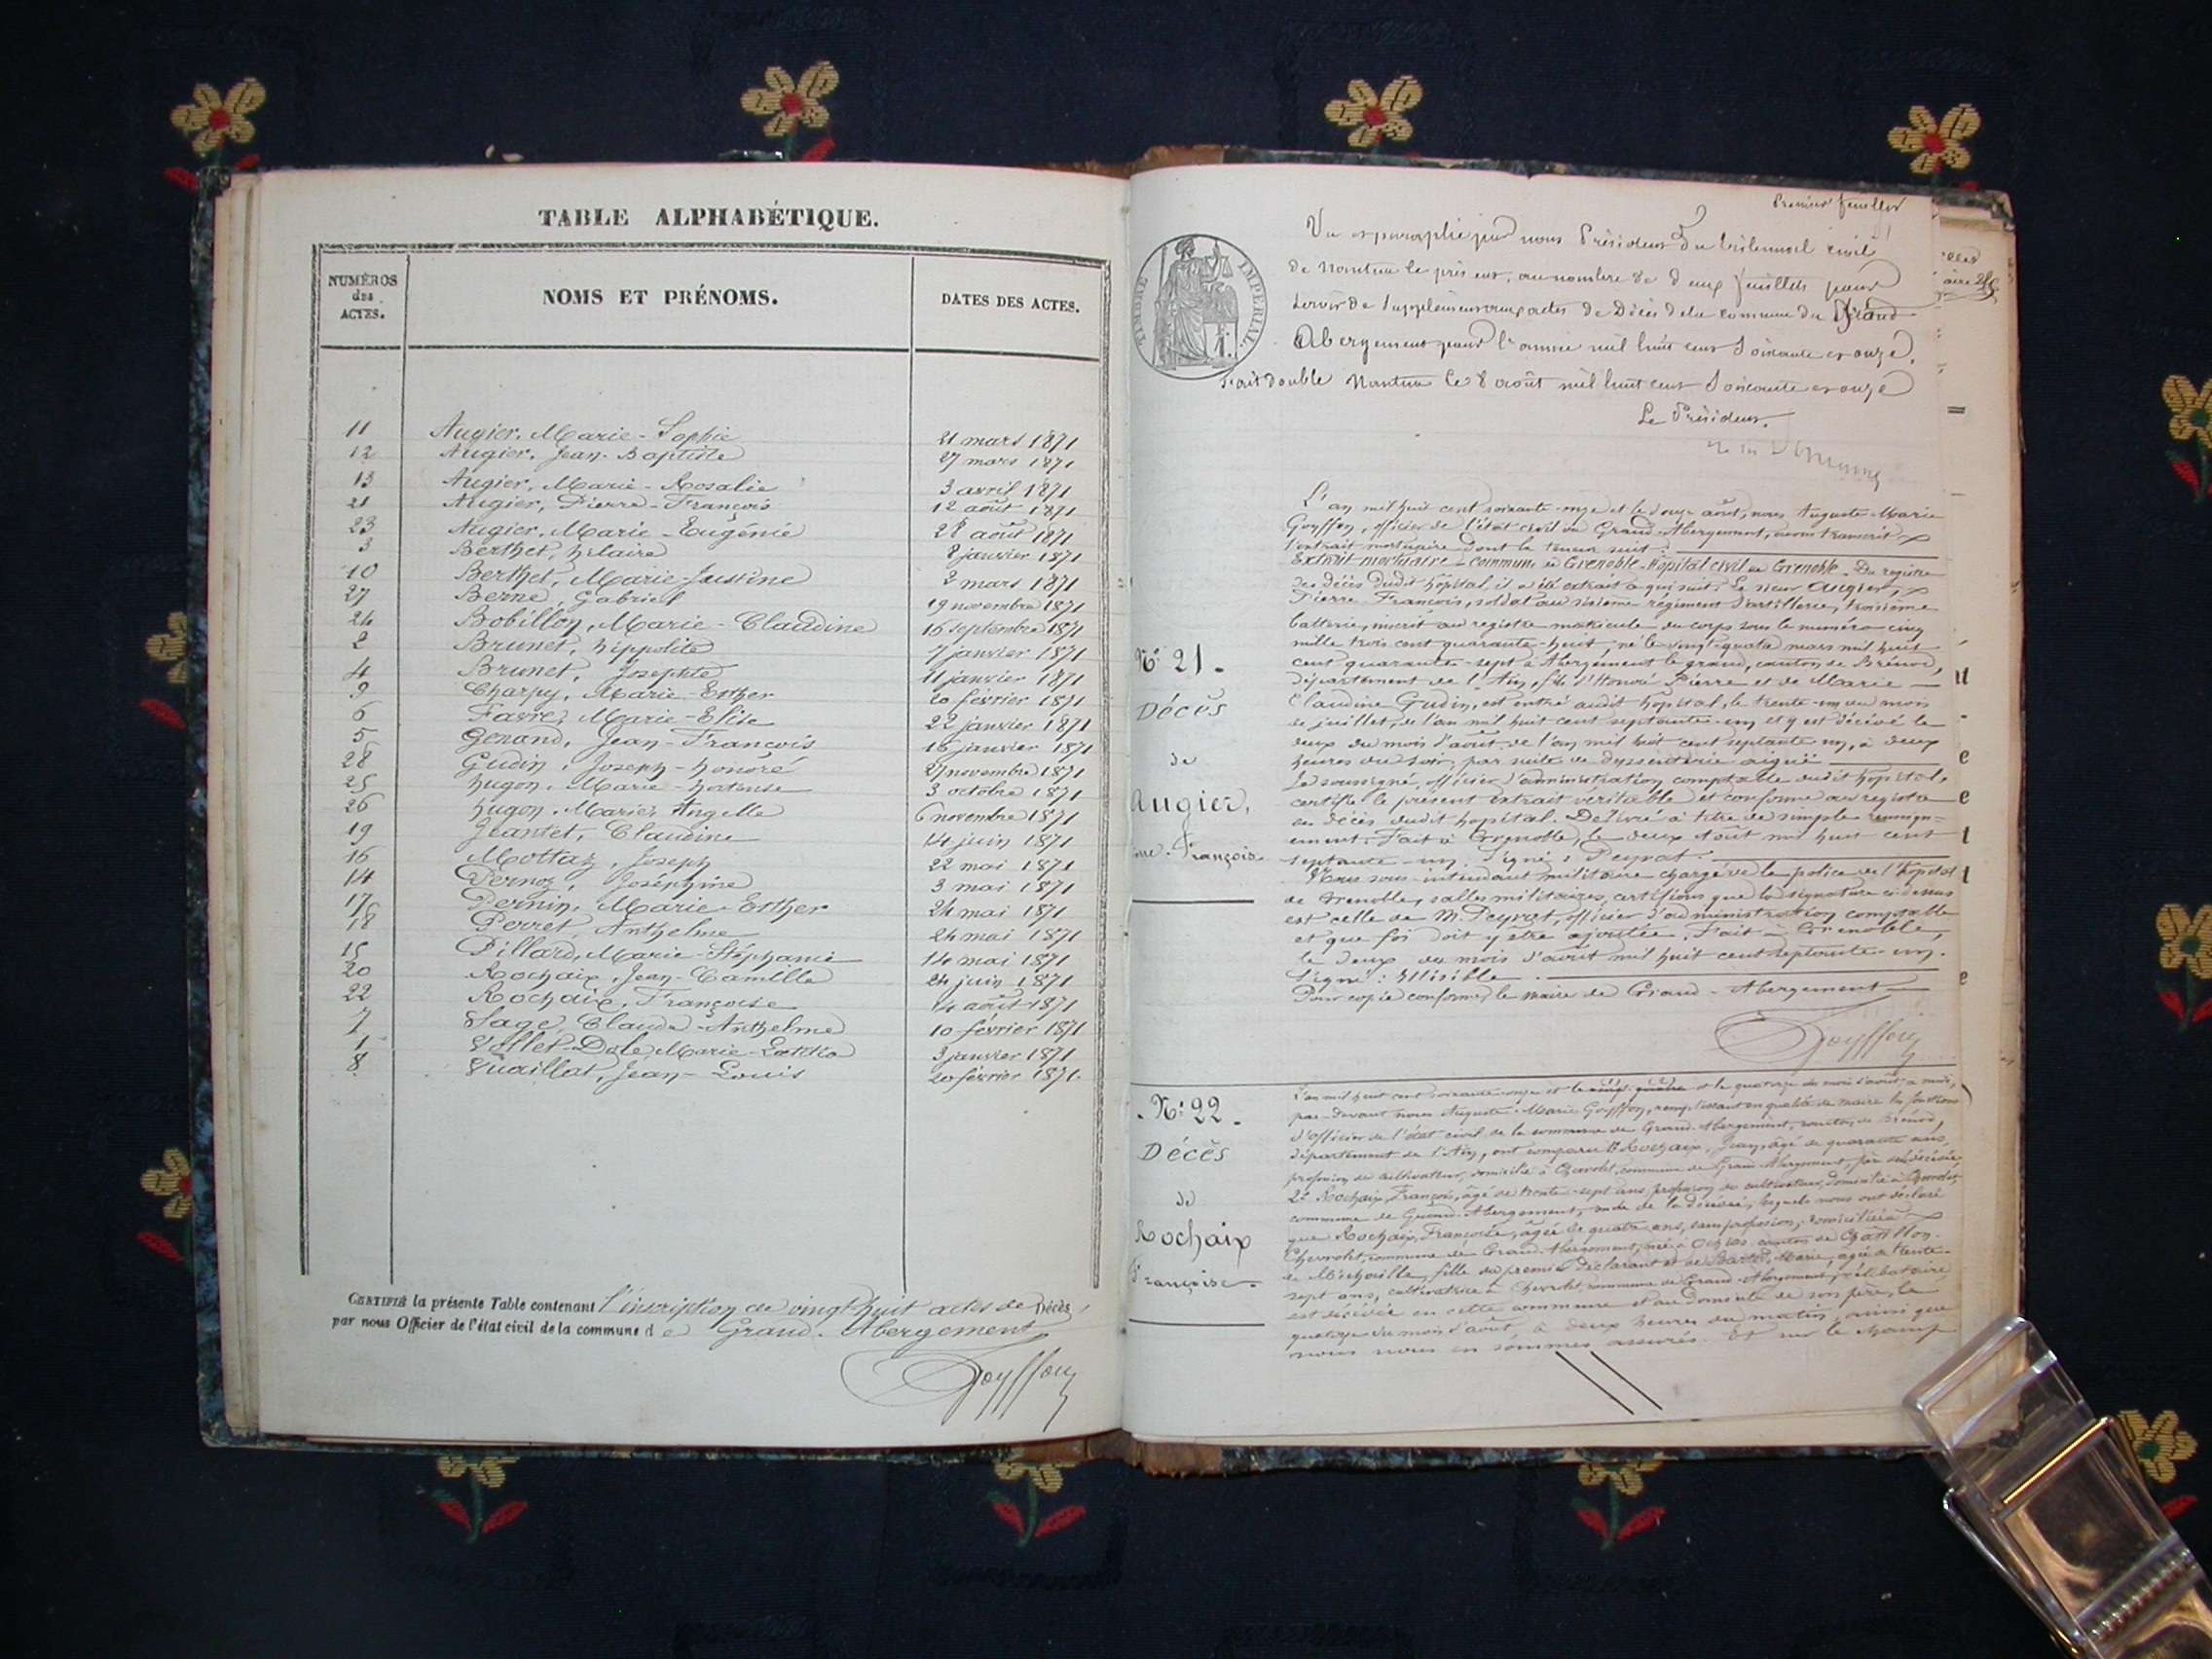 TABLE ALPHABÉTIQUE.
NUMÉROS
des
ACTES.
NOMS ET PRÉNOMS.
DATES DES ACTES.
11 Augier, Marie-Sophie 21 mars 1871
12 Augier, Jean-Baptiste 27 mars 1871
13 Augier, Marie-Rosalie 3 avril 1871
21 Augier, Pierre-François 12 août 1871
23 Augier, Marie-Eugénie 28 août 1871
3 Berthet, hilaire 8 janvier 1871
10 Berthet, Marie-Justine 2 mars 1871
27 Berne, Gabriel 19 novembre 1871
24 Bobillon, Marie-Claudine 16 septembre 1871
2 Brunet, hippolite 7 janvier 1871
4 Brunet, Josephte 11 janvier 1871
9 Charpy, Marie-Esther 20 février 1871
6 Favre, Marie-Elise 22 janvier 1871
5 Genand, Jean-François 16 janvier 1871
28 Gudin, Joseph-honoré 27 novembre 1871
25 hugon, Marie-hortense 3 octobre 1871
26 hugon, Marie, Angelle 6 novembre 1871
19 Jeantet, Claudine 14 juin 1871
16 Mottaz, Joseph 22 mai 1871
14 Pernoz, Joséphine 3 mai 1871
17 Pernin, Marie-Esther 24 mai 1871
18 Perret, Anthelme 24 mai 1871
15 Pillard, Marie-Stéphanie 14 mai 1871
20 Rochaix, Jean-Camille 24 juin 1871
22 Rochaix, Françoise 14 août 1871
7 Sage, Claude-Anthelme 10 février 1871
1 Vollet-Dole, Marie 3 janvier 1871
8 Vuaillat, Jean-Louis 20 février 1871.
CERTIFIÉ la présente Table contenant l'inscription de vingt huit actes de Décès,
par nous Officier de l'état civil de la commune de Grand-Abergement
Goyffon
Premier feuillet
TIMBRE IMPÉRIAL.
Vu et paraphé par nous Président du tribunal civil
de Nantua le présent, au nombre de deux feuillets pour
servir de supplément aux actes de Décès de la commune du Grand
Abergement pour l'année mil huit cent soixante et onze.
Fait double Nantua le 8 août mil huit cent soixante et onze
Le Président.
L'an mil huit cent soixante-onze et le douze août, nous Auguste-Marie
Goyffon, officier de l'état civil du Grand-Abergement, avons transcrit
l'extrait mortuaire dont la teneur suit:
Extrait mortuaire - commune de Grenoble - Hôpital civil de Grenoble - Du registre
des décès dudit hôpital, il a été extrait ce qui suit: Le sieur Augier,
Pierre-François, soldat au sixième régiment d'artillerie, troisième
batterie, inscrit au registre matricule du corps sous le numéro cinq
mille trois cent quarante-huit, né le vingt-quatre mars mil huit
cent quarante-sept à Abergement le grand, canton de Brénod,
département de l'Ain, fils d'Honoré Pierre et de Marie
Claudine Gudin, est entré audit hôpital, le trente-un du mois
de juillet, de l'an mil huit cent septante-un et y est décédé le
deux du mois d'août de l'an mil huit cent septante un, à deux
heures du soir, par suite de dyssenterie aiguë
Le soussigné, officier d'administration comptable dudit hôpital,
certifie le présent extrait véritable et conforme au registre
des décès dudit hôpital. Délivré à titre de simple renseign-
ement. Fait à Grenoble, le deux août mil huit cent
septante-un. Signé: Peyrat.
Nous sous-intendant militaire chargé de la police de l'hôpital
de Grenoble, salles militaires, certifions que la signature ci-dessus
est celle de M. Peyrat, officier d'administration comptable
et que foi doit y être ajoutée. Fait à Grenoble,
le deux du mois d'août mil huit cent septante-un.
Signé: Illisible.
Pour copie conforme, le maire de Grand-Abergement
Goyffon
N° 21.
Décès
de
Augier,
François
N° 22.
Décès
de
Rochaix
Françoise.
L'an mil huit cent soixante-onze et le et le quatorze du mois d'août, à midi,
par-devant nous Auguste-Marie Goyffon, remplissant en qualité de maire les fonctions
d'officier de l'état civil de la commune de Grand-Abergement, canton de Brénod,
département de l'Ain, ont comparu 1° Rochaix, Jean, âgé de quarante ans,
profession de cultivateur, domicilié à Chevrolet, commune de Grand-Abergement, père de la décédée
2° Rochaix, François, âgé de trente-sept ans, profession de cultivateur, domicilié à Chevrolet,
commune de Grand-Abergement, oncle de la décédée, lesquels nous ont déclaré
que Rochaix, Françoise, âgée de quatre ans, sans profession, domiciliée à
Chevrolet, commune de Grand-Abergement, née à Ochiaz canton de Châtillon
de Michaille, fille du premier déclarant et de Marie, âgée de trente-
sept ans, cultivatrice à Chevrolet, commune de Grand-Abergement,
est décédée en cette commune et au domicile de son père, le
quatorze du mois d'août, à deux heures du matin, ainsi que
nous nous en sommes assurés. Et sur le champ